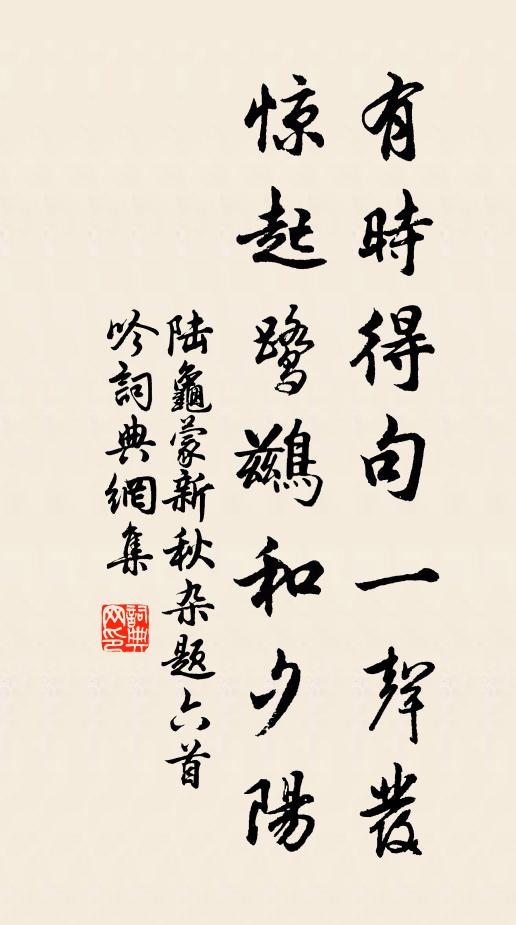 有時得句一聲發
惊起鹭鷀和夕陽
陆龜蒙新秋杂题六首
吟詞典網集
詞典网印